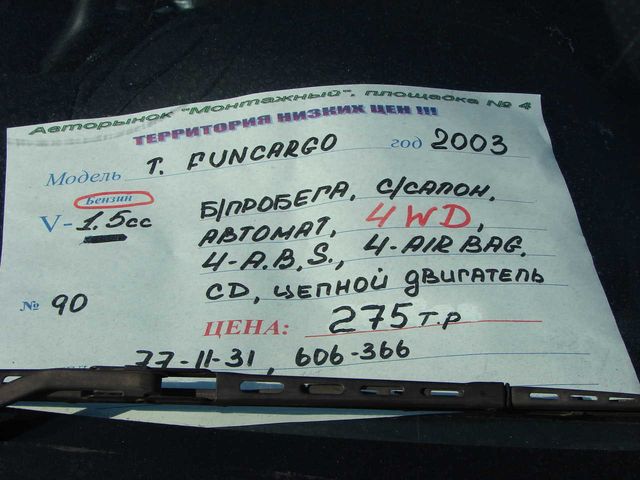 Авторынок "Монтажный", площадка № 4
ТЕРРИТОРИЯ НИЗКИХ ЦЕН !!!
Модель T. FUNCARGO год 2003
Бензин
V- 1.5cc
Б/ПРОБЕГА, С/САЛОН,
АВТОМАТ, 4WD,
4-A.B.S., 4-AIRBAG.
CD, ЦЕПНОЙ ДВИГАТЕЛЬ
№ 90
ЦЕНА: 275 т.р
77-11-31, 606-366